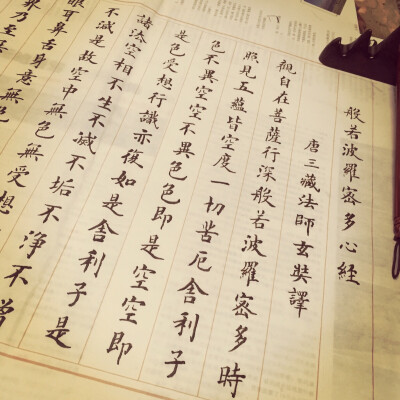 般若波羅蜜多心經
唐三藏法師玄奘譯
觀自在菩薩行深般若波羅蜜多時
照見五蘊皆空度一切苦厄舍利子
色不異空空不異色色即是空空即
是色受想行識亦復如是舍利子是
諸法空相不生不滅不垢不淨不增
不減是故空中無色無受想
眼耳鼻舌身意無色
界乃至